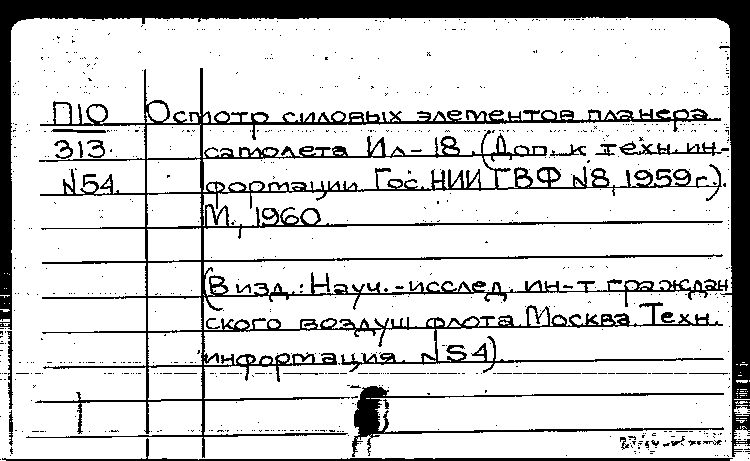 П10 Осмотр силовых элементов планера
313 самолета Ил-18. (Доп. к техн. ин-
№54. формации Гос. НИИ ГВФ №8, 1959г.).
М., 1960
(В изд.: Науч.-исслед. ин-т граждан
ского воздуш. флота. Москва. Техн.
информация. №54).